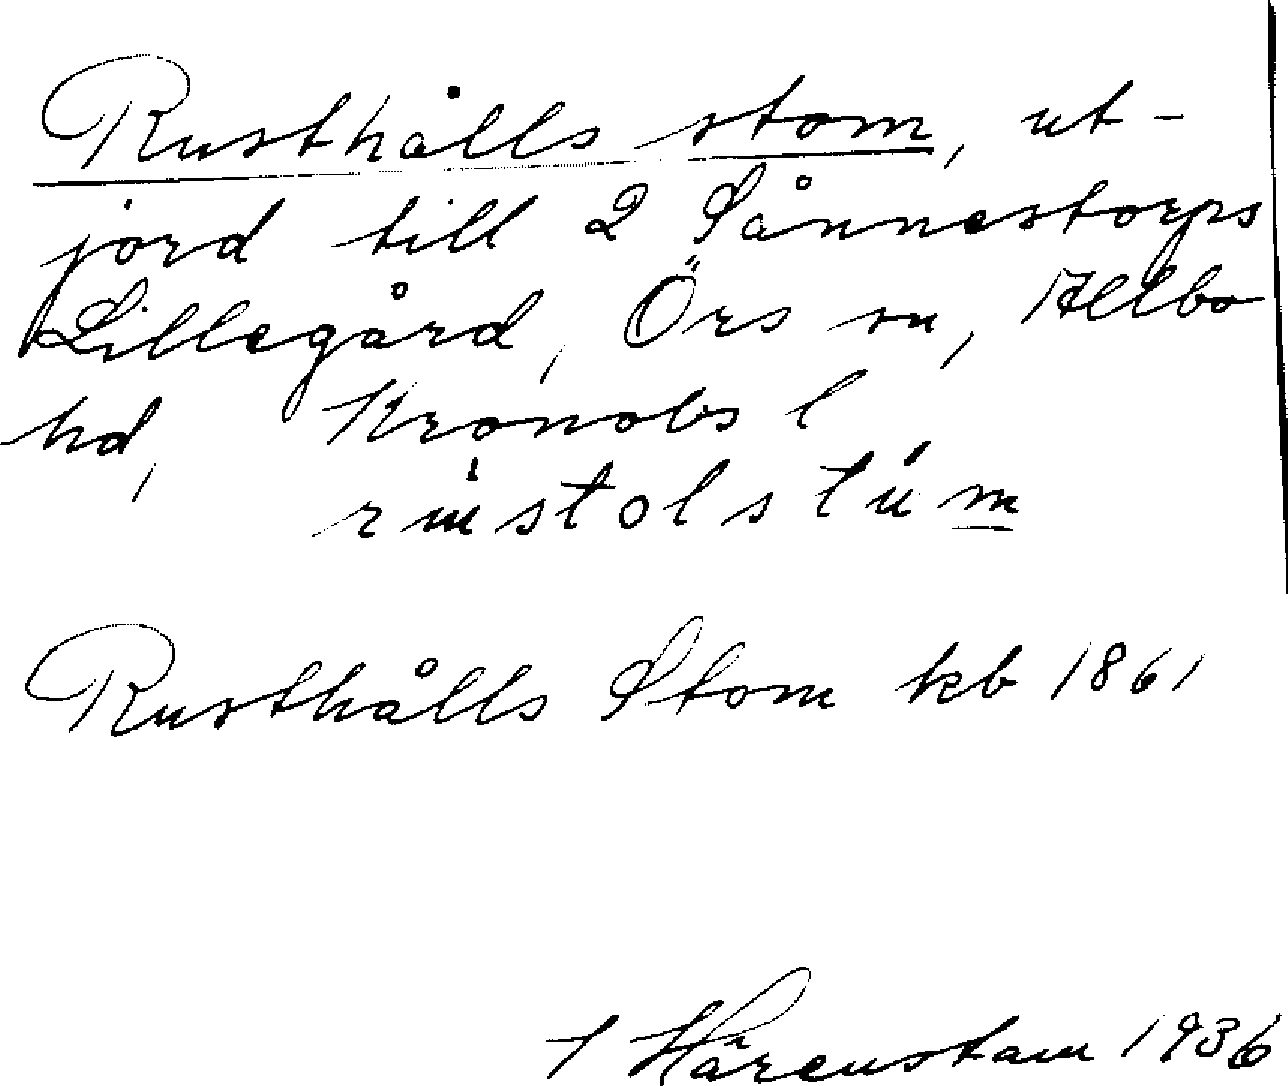 Rusthålls stom, ut-
jord till 2 Sånnestorps
Lillegård, Örs sn, Allbo
hd, Kronobs l
Rusthålls Stom kb 1861
Hårenstam 1936